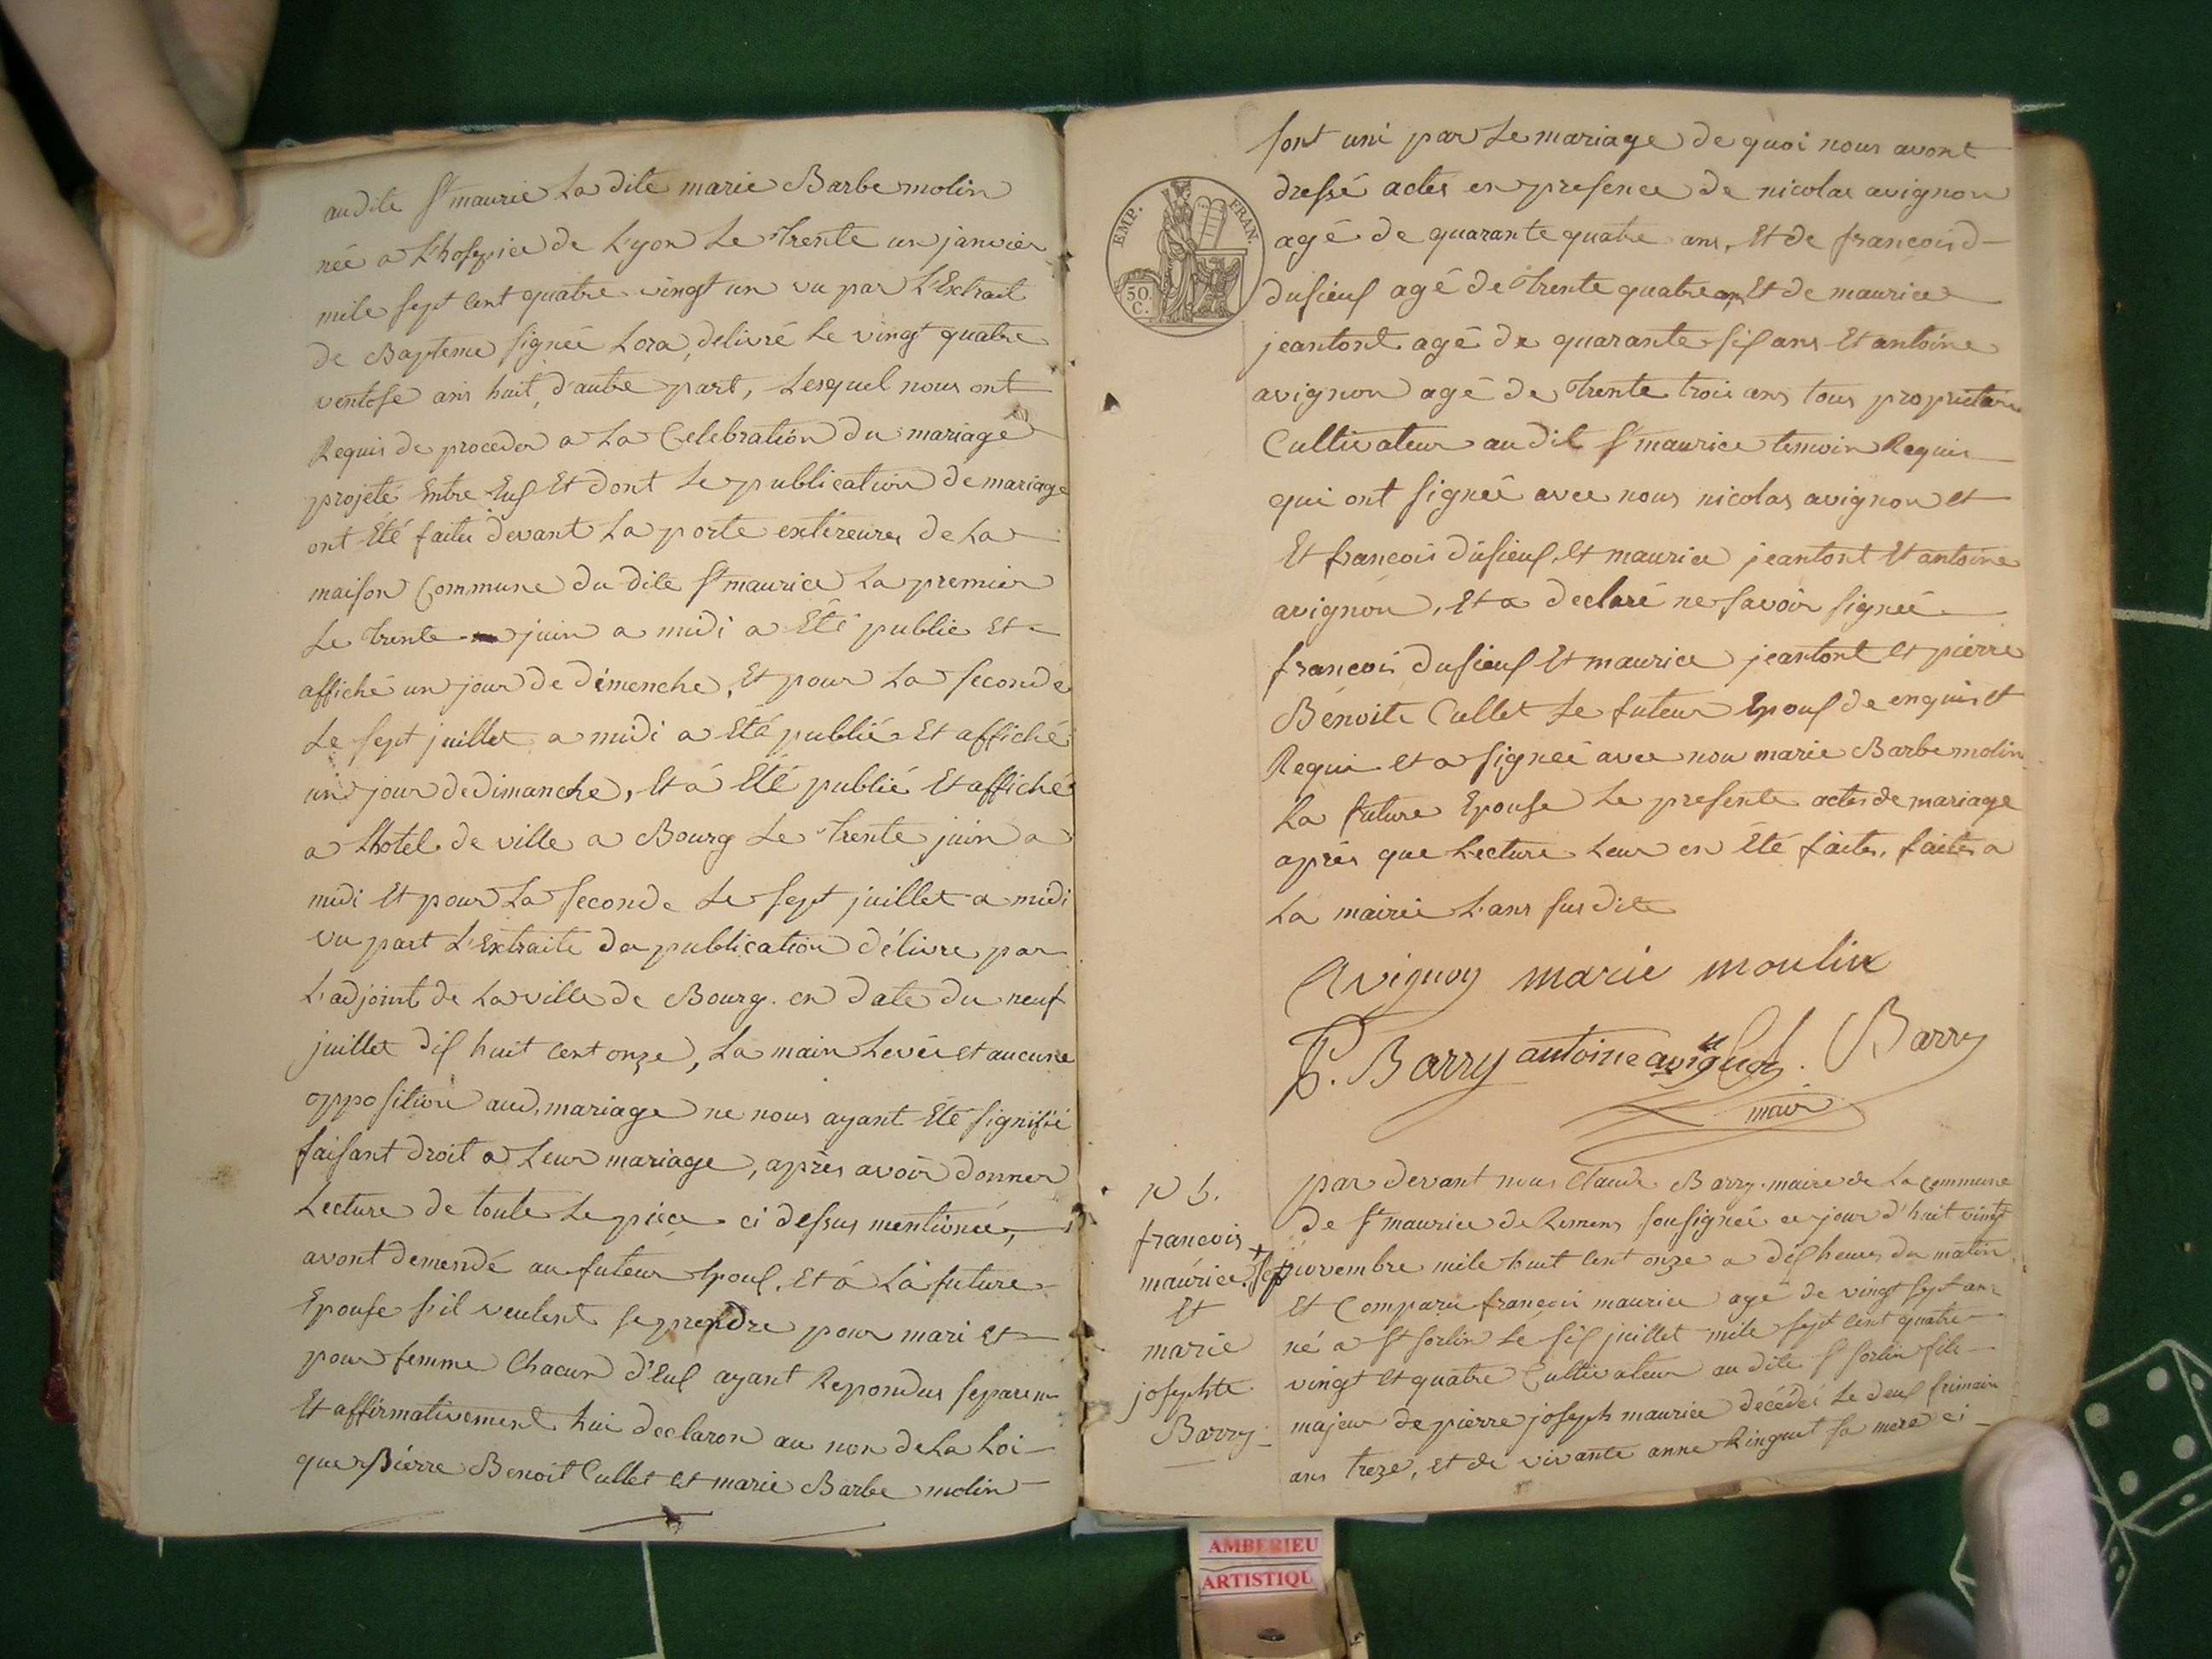 audite St maurice La dite marie Barbe molin
née a L'hospice de Lyon Le trente un janvier
mile sept Cent quatre vingt un vu par L'Extrait
de Bapteme signée Lora, delivré Le vingt quatre
ventose ans huit, d'autre part, Lesquel nous ont
Requis de proceder a La Celebration du mariage
projeté Entre Eux Et dont Le publication de mariage
ont Été faites devant La porte extèreures de La
maison Commune du dite St maurice La premier
Le trente juin a midi a Eté publie Et
affiché un jour de dimenche, Et pour La seconde
Le sept juillet a midi a Eté publié Et affiché
un jour de dimanche, Et a Eté publié Et affiché
a Lhotel de ville a Bourg Le trente juin a
midi Et pour La seconde Le sept juillet a midi
vu part L'Extraite de publication délivre par
L'adjoint de La ville de Bourg en date du neuf
juillet dix huit Cent onze, La main Levée et aucune
opposition aud. mariage ne nous ayant Eté signifié
faisant droit a Leur mariage, après avoir donner
Lecture de toute Le pièce ci dessus mentionée,
avont demendé au futeur Epoux, Et à La future
Epouse s'il veulent se prendre pour mari Et
pour femme Chacun d'Eux ayant Repondus separem
Et affirmativement hui declaron au non de La Loi
que Pierre Benoit Cullet Et marie Barbe molin
EMP. FRAN.
50.
C.
sont uni par Le mariage de quoi nous avont
dressé actes en presence de nicolas avignon
agé de quarante quatre ans, Et de francois d
dusieux agé de trente quatre ans Et de maurice
jeantont agé de quarante six ans Et antoine
avignon agé de trente trois ans tous proprietaire
Cultivateur au dit St maurice temoin Requis
qui ont signée avec nous nicolas avignon et
Et francois dusieux, Et maurice jeantont Et antoine
avignon, Et a declaré ne savoir signée
francois dusieux Et maurice jeantont et pierre
Bénoite Cullet Le futeur Epoux de enquis et
Requi et a signée avec nou marie Barbe molin
La future Epouse Le presente actes de mariage
après que Lecture Leur en Eté faites, faites a
La mairie L'ans susdite
Avignon marie moulin
P. Barry antoine avignon Cl. Barry
mair
N 5.
francois
maurice
Et
marie
josephte
Barry
par devant nous Claude Barry maire de La Commune
de St maurice de Remens sousignée ce jour d'huit vingt
sept novembre mile huit Cent onze a dix heures du matin
Et Comparu françois maurice agé de vingt sept ans
né a St sorlin Le six juillet mile sept Cent quatre
vingt Et quatre Cultivateur au dite St sorlin fils
majeur de pierre joseph maurice decédée Le deux frimaire
ans treze, et de vivante anne Ringuet sa mere ci
AMBERIEU
ARTISTIQU